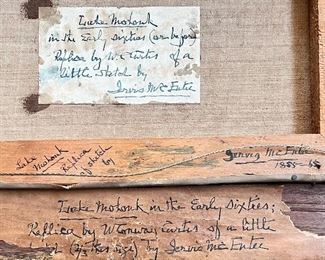 Lake Mohonk
in the Early Sixties (or before)
Replica by W. Curtis of a
little sketch by
Jervis McEntee
Lake
Mohonk
Replica
of sketch
by
Jervis McEntee
1855-65
Lake Mohonk in the Early Sixties;
Replica by W Conway Curtis of a little
sketch (2/3 this size) by Jervis McEntee